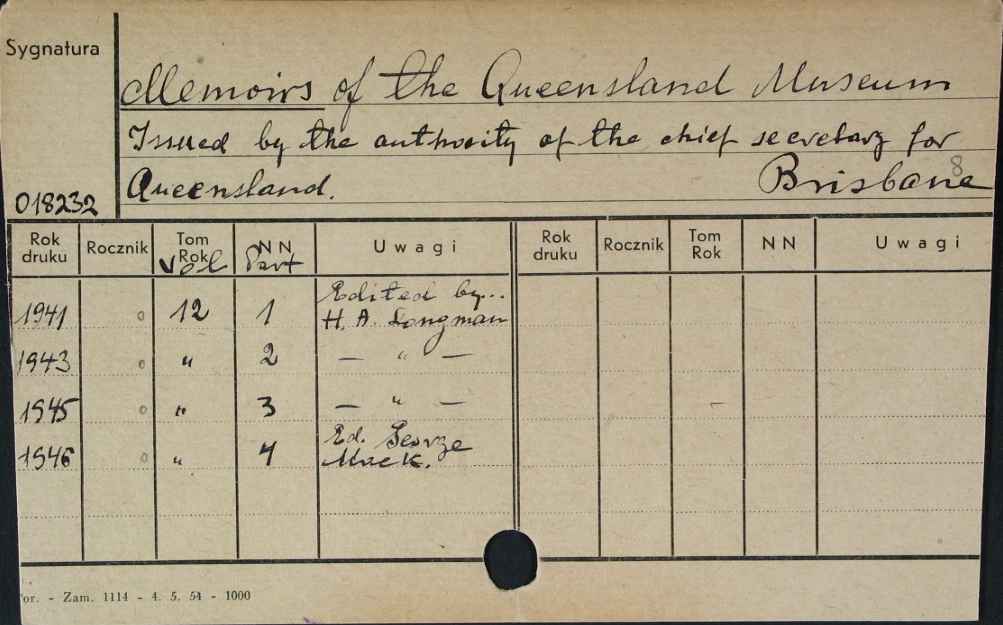 Sygnatura
Memoirs of the Queensland Museum
Issued by the authority of the chief secretary for
Queensland. Brisbane
8
018232
Rok druku Rocznik Tom Rok Vol NN Part Uwagi Rok druku Rocznik Tom Rok NN Uwagi
Edited by...
1941 o 12 1 H. A. Longman
1943 o " 2 — " —
1945 o " 3 — " —
Ed. George
1946 o " 4 Mack.
or. - Zam. 1114 - 4. 5. 54 - 1000